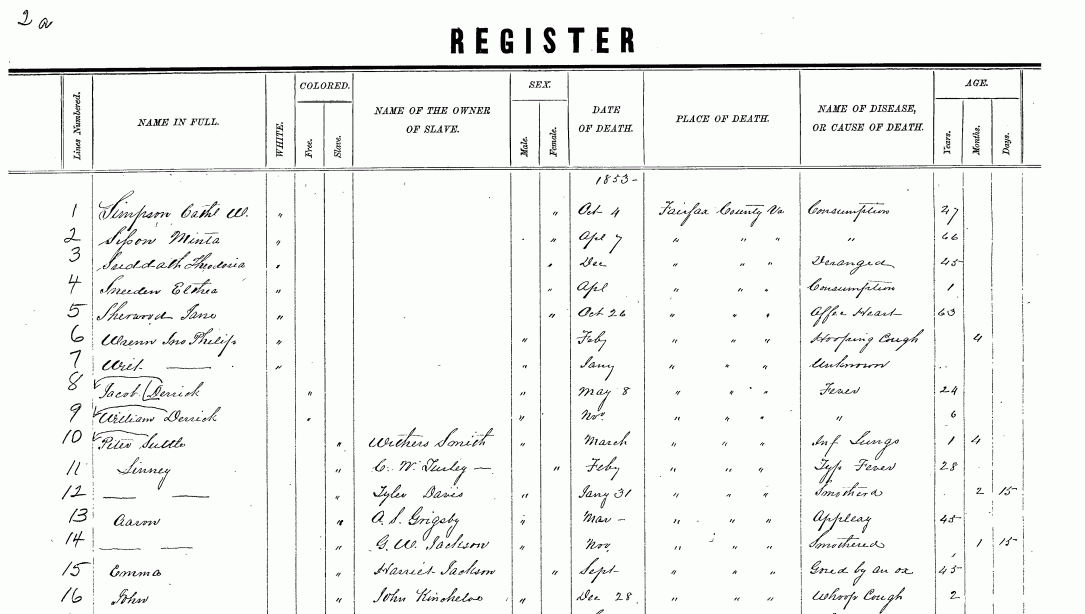 2 a
REGISTER
Lines Numbered. NAME IN FULL. WHITE. COLORED. Free. Slave. NAME OF THE OWNER OF SLAVE. SEX. Male. Female. DATE OF DEATH. PLACE OF DEATH. NAME OF DISEASE, OR CAUSE OF DEATH. AGE. Years. Months. Days.
1853-
1 Simpson Cathl W. " " Oct 4 Fairfax County Va Consumption
2 Sisson Minta " " Apl 7 " " " " 66
3 Suddath Theodoria " " Dec " " " Deranged 45
4 Sneeden " Apl " " " Consumption 1
5 Sherwood Jane " " Oct 26 " " " Affec Heart 63
6 Wrenn Jno Philip " " Feby " " " Hooping Cough 4
7 Writ — " " Jany " " " Unknown
8 Jacob Derrick " " May 8 " " " Fever 24
9 William Derrick " " Nov " " " " 6
10 Peter Suttle " Withers Smith " March " " " Inf Lungs 1 4
11 Linney " C. W. Turley — " Feby " " " Typ Fever 28
12 — — " Tyler Davis " Jany 31 " " " Smotherd 2 15
13 Aaron " A. S. Grigsby " Mar — " " " Applexy 45
14 — — " G. W. Jackson " Nov " " " Smothered 1 15
15 Emma " Harriet Jackson " Sept " " " Gored by an ox 45
16 John " John Kincheloe " Dec 28 " " " Whoop Cough 2